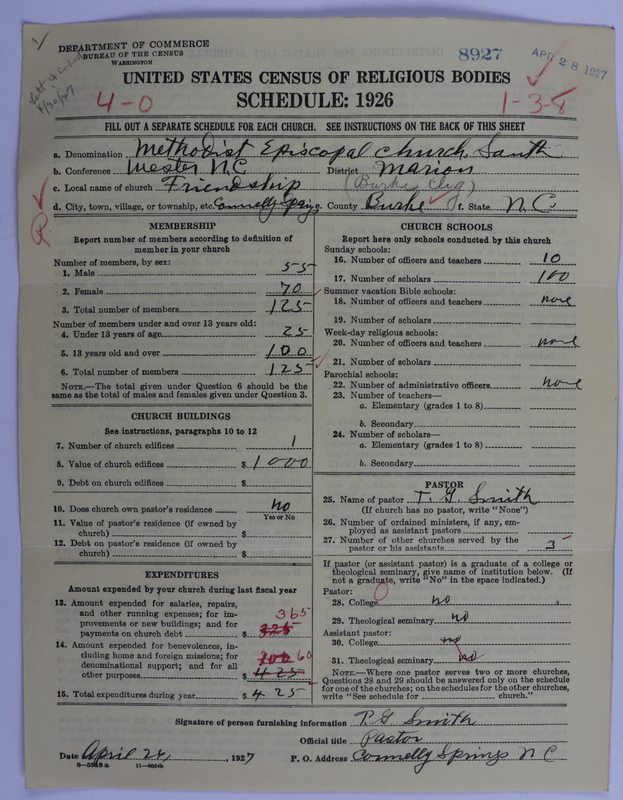 DEPARTMENT OF COMMERCE
BUREAU OF THE CENSUS
WASHINGTON
8927
APR 28 1927
UNITED STATES CENSUS OF RELIGIOUS BODIES
4-0
SCHEDULE: 1926
1-3-8
FILL OUT A SEPARATE SCHEDULE FOR EACH CHURCH. SEE INSTRUCTIONS ON THE BACK OF THIS SHEET
a. Denomination Methodist Episcopal Church, South
b. Conference Wester N.C District Marion
c. Local name of church Friendship (Burke
d. City, town, village, or township, etc. Connelly Springs e. County Burke f. State N.C.
MEMBERSHIP
Report number of members according to definition of
member in your church
Number of members, by sex:
1. Male 55
2. Female 70
3. Total number of members 125
Number of members under and over 13 years old:
4. Under 13 years of age 25
5. 13 years old and over 100
6. Total number of members 125
NOTE.—The total given under Question 6 should be
same as the total of males and females given under Question 3.
CHURCH BUILDINGS
See instructions, paragraphs 10 to 12
7. Number of church edifices 1
8. Value of church edifices $ 1000
9. Debt on church edifices $
10. Does church own pastor's residence no
Yes or No
11. Value of pastor's residence (if owned by
church) $
12. Debt on pastor's residence (if owned by
church) $
EXPENDITURES
Amount expended by your church during last fiscal year
13. Amount expended for salaries, repairs,
and other running expenses; for im- 365
provements or new buildings; and for
payments on church debt $ 325
14. Amount expended for benevolences, in-
cluding home and foreign missions; for 100 60
denominational support; and for all
other purposes $ 425
15. Total expenditures during year $ 425
CHURCH SCHOOLS
Report here only schools conducted by this church
Sunday schools:
16. Number of officers and teachers 10
17. Number of scholars 100
Summer vacation Bible schools:
18. Number of officers and teachers none
19. Number of scholars
Week-day religious schools:
20. Number of officers and teachers none
21. Number of scholars
Parochial schools:
22. Number of administrative officers none
23. Number of teachers—
a. Elementary (grades 1 to 8)
b. Secondary
24. Number of scholars—
a. Elementary (grades 1 to 8)
b. Secondary
PASTOR
25. Name of pastor T. G. Smith
(If church has no pastor, write "None")
26. Number of ordained ministers, if any, em-
ployed as assistant pastors
27. Number of other churches served by the
pastor or his assistants 3
If pastor (or assistant pastor) is a graduate of a college or
theological seminary, give name of institution below. (If
not a graduate, write "No" in the space indicated.)
Pastor:
28. College no
29. Theological seminary no
Assistant pastor:
30. College no
31. Theological seminary no
NOTE.—Where one pastor serves two or more churches,
Questions 28 and 29 should be answered only on the schedule
for one of the churches; on the schedules for the other churches,
write "See schedule for church."
Signature of person furnishing information T. G Smith
Official title Pastor
Date April 26, 1927 P. O. Address Connelly Springs N C